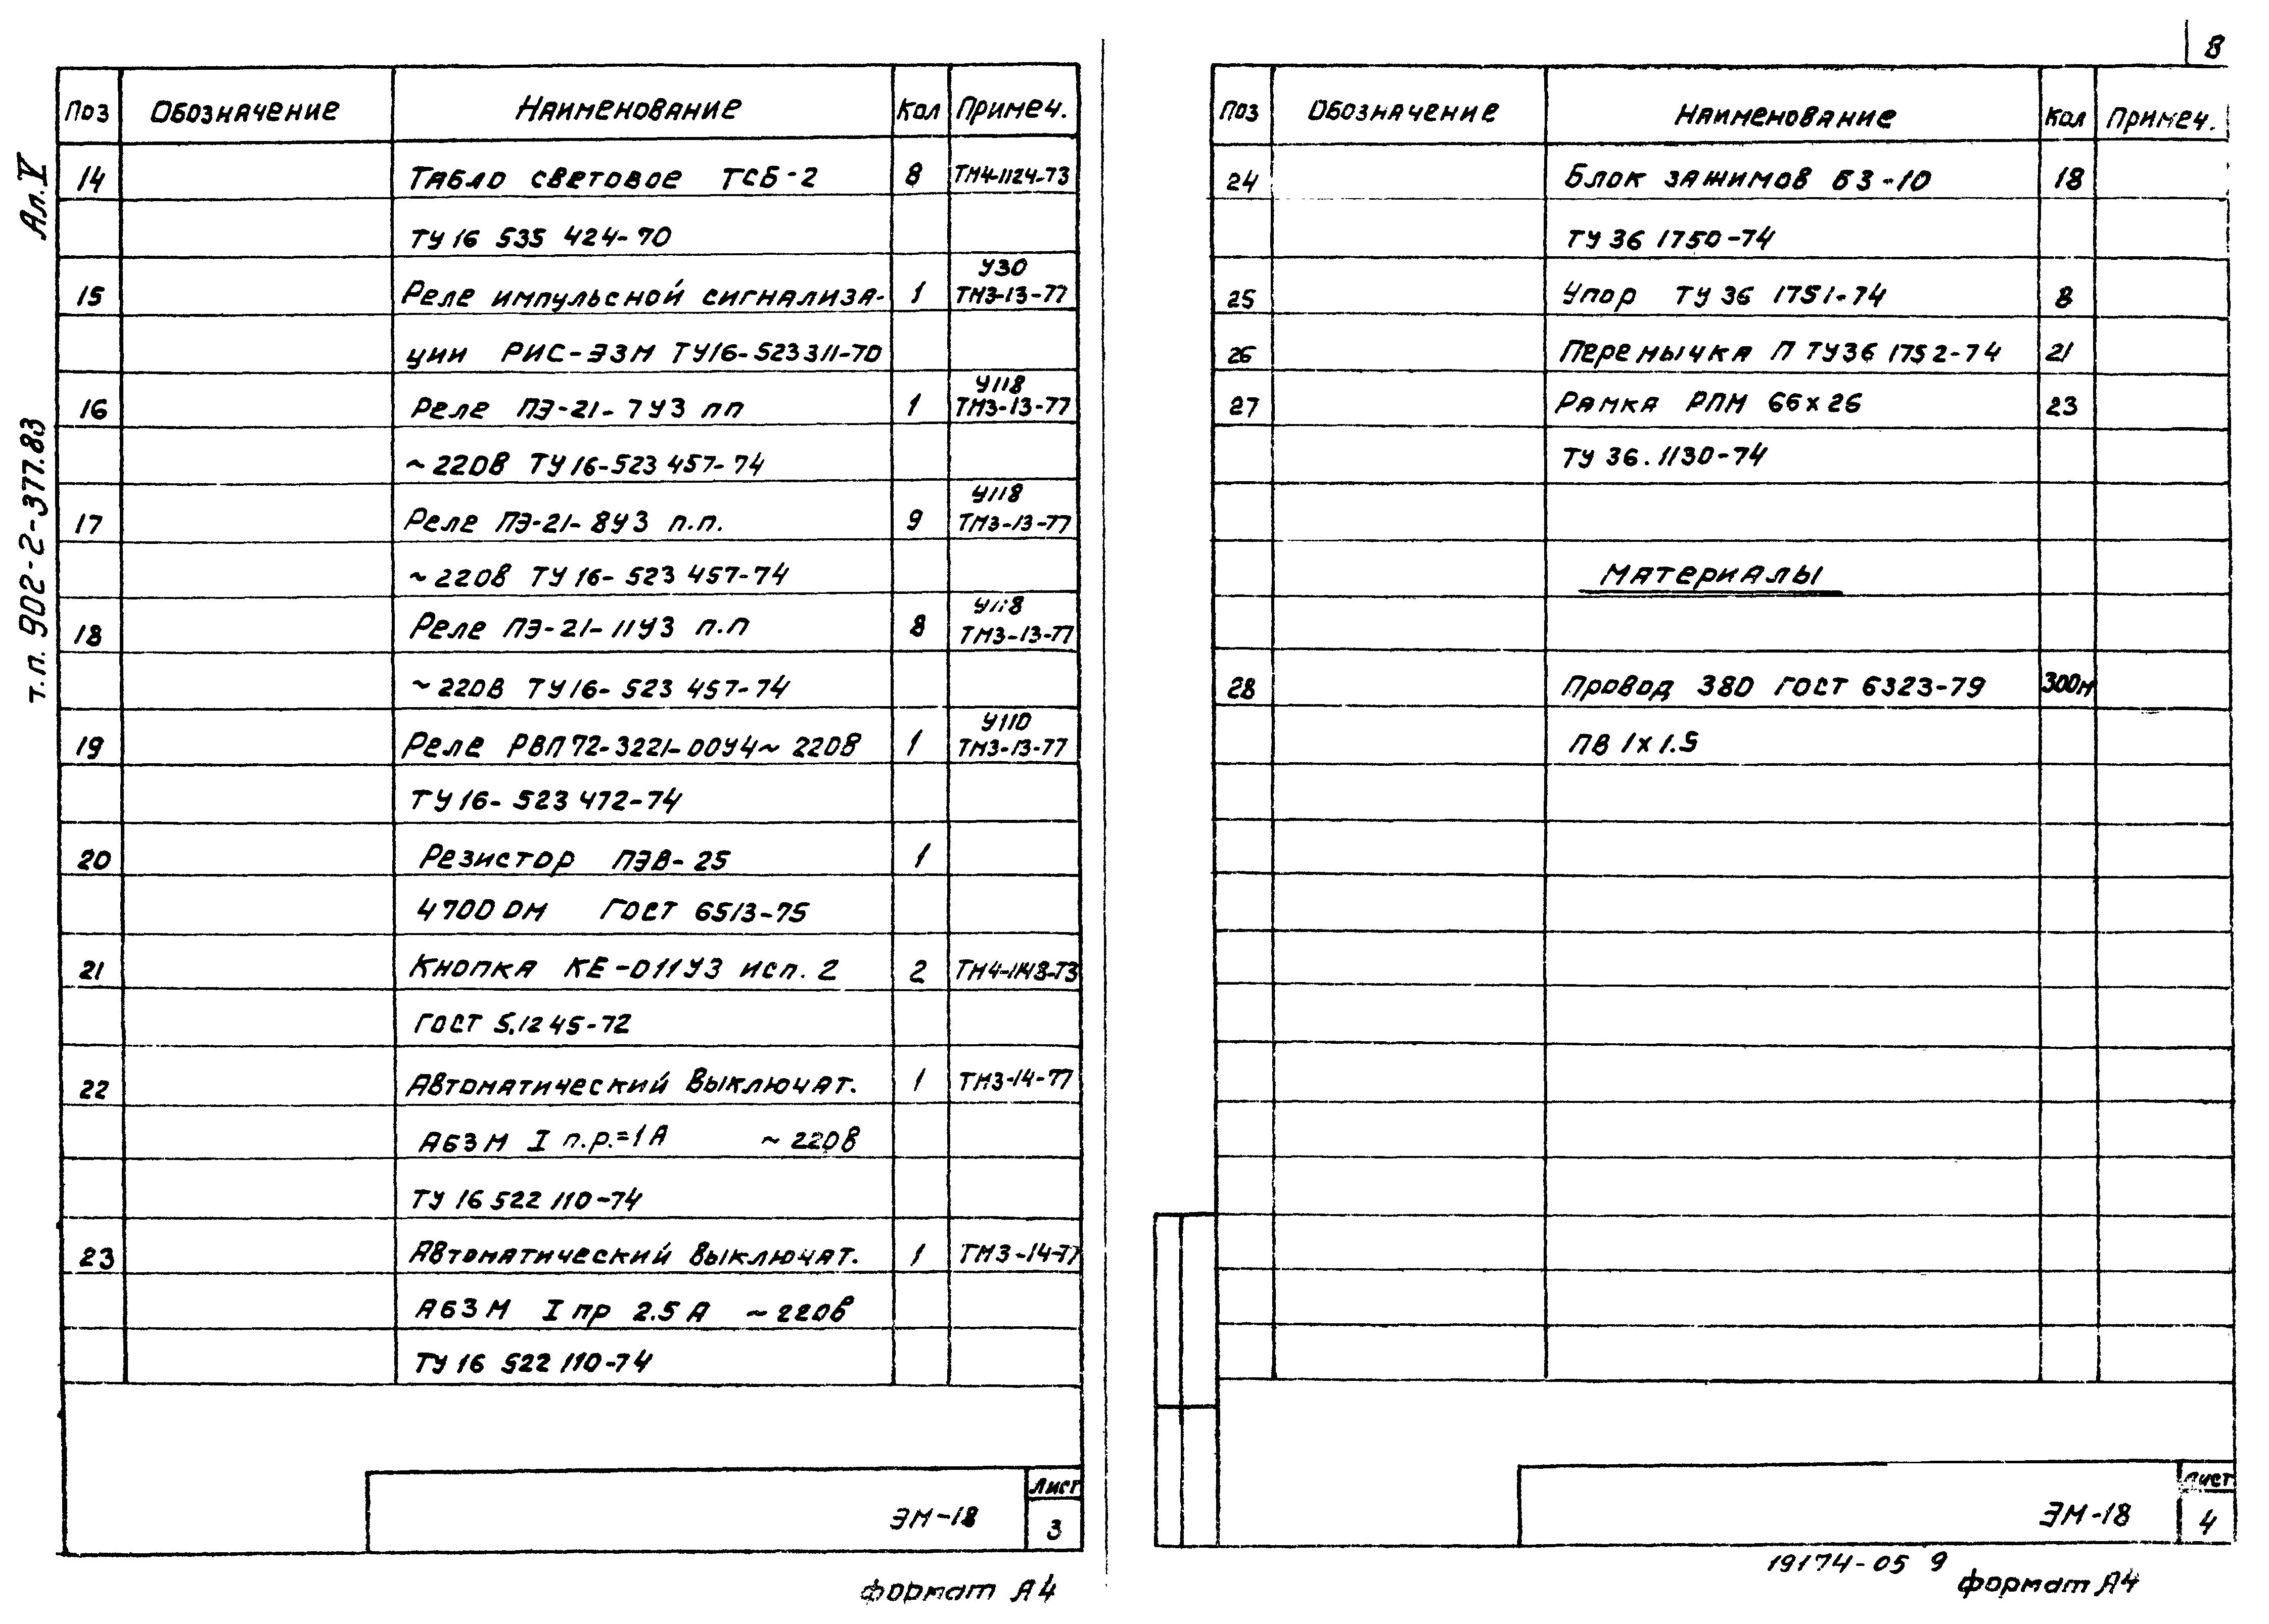 8
Ал. V
т.п. 902-2-377.83
Поз Обозначение Наименование Кол Примеч.
14 Табло световое ТСБ-2 8 ТМ4-1124-73
ТУ 16 535 424-70
У30
15 Реле импульсной сигнализа- 1 ТМ3-13-77
ции РИС-ЭЗМ ТУ16-523311-70
У118
16 Реле ПЭ-21-7У3 пп 1 ТМ3-13-77
~220В ТУ 16-523 457-74
У118
17 Реле ПЭ-21-8У3 п.п. 9 ТМ3-13-77
~220В ТУ 16-523 457-74
У118
18 Реле ПЭ-21-11У3 п.п 8 ТМ3-13-77
~220В ТУ16-523 457-74
У110
19 Реле РВП72-3221-00У4~ 220В 1 ТМ3-13-77
ТУ 16-523 472-74
20 Резистор ПЭВ-25 1
4700 ОМ ГОСТ 6513-75
21 Кнопка КЕ-011У3 исп. 2 2 ТМ4-1148-73
ГОСТ 5.1245-72
22 Автоматический выключат. 1 ТМ3-14-77
А63М I п.р.=1А ~220В
ТУ 16 522 110-74
23 Автоматический выключат. 1 ТМ3-14-77
А63М I пр 2.5А ~220В
ТУ 16 522 110-74
ЭМ-18
Лист
3
формат А4
Поз Обозначение Наименование Кол Примеч.
24 Блок зажимов БЗ-10 18
ТУ 36 1750-74
25 Упор ТУ 36 1751-74 8
26 Перемычка П ТУ36 1752-74 21
27 Рамка РПМ 66х26 23
ТУ 36.1130-74
Материалы
28 Провод 380 ГОСТ 6323-79 300м
ПВ 1х1.5
ЭМ-18
Лист
4
19174-05 9
формат А4